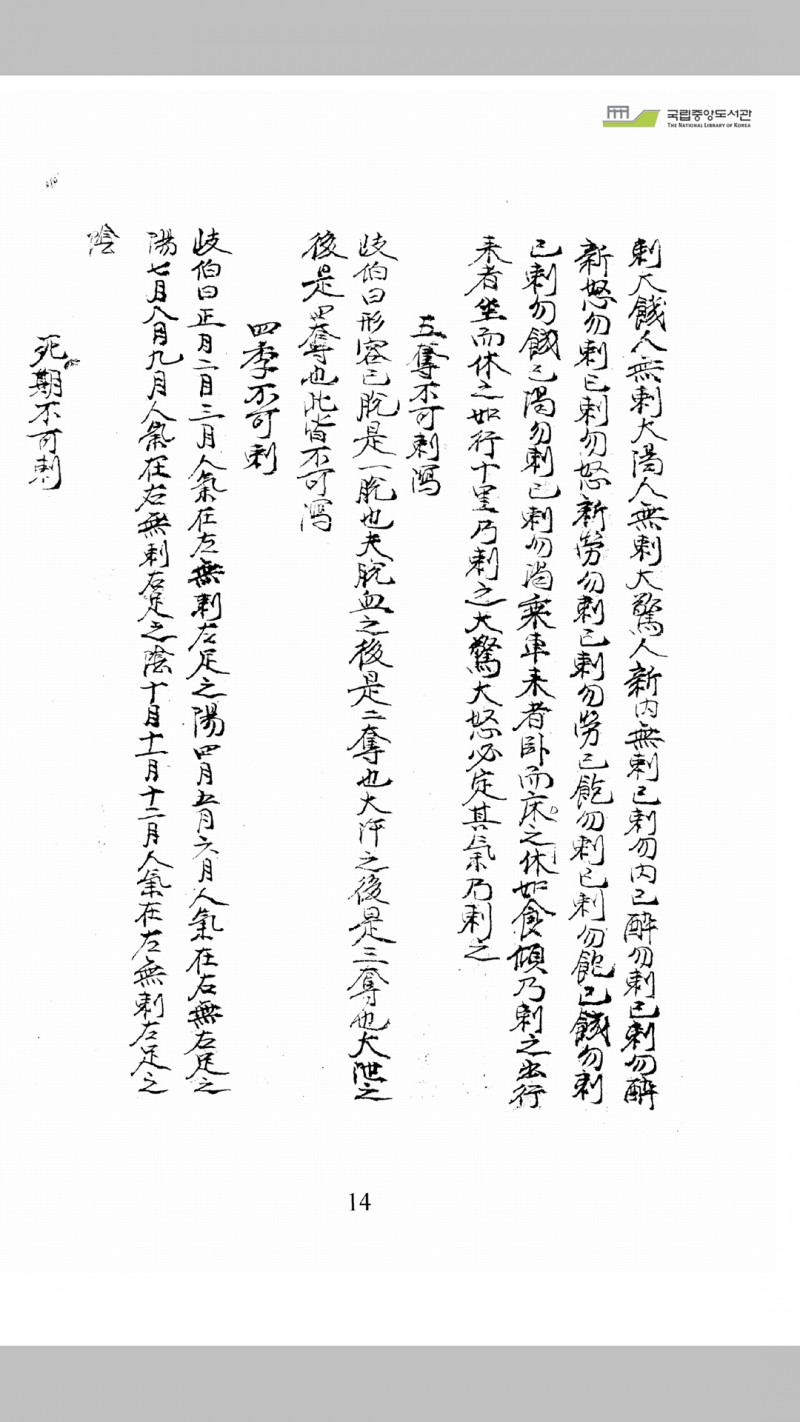 국립중앙도서관
THE NATIONAL LIBRARY OF KOREA
刺大餓人無刺大渴人無刺大驚人新內無刺已刺勿內已醉勿刺已刺勿醉
新怒勿刺已刺勿怒新勞勿刺已刺勿勞已飽勿刺已刺勿飽已餓勿刺
已刺勿餓已渴勿刺已刺勿渴乘車來者臥而床之休如食傾乃刺之出行
来者坐而休之如行十里乃刺之大驚大怒必定其氣乃刺之
五奪不可刺瀉
歧伯曰形容已脫是一脫也夫脫血之後是二奪也大汗之後是三奪也大泄之
後是四奪也此皆不可瀉
四季不可刺
歧伯曰正月二月三月人氣在左無刺左足之陽四月五月六月人氣在右無右足之
陽七月八月九月人氣在右無刺右足之陰十月十一月十二月人氣在左無刺左足之
陰
死期不可刺
14